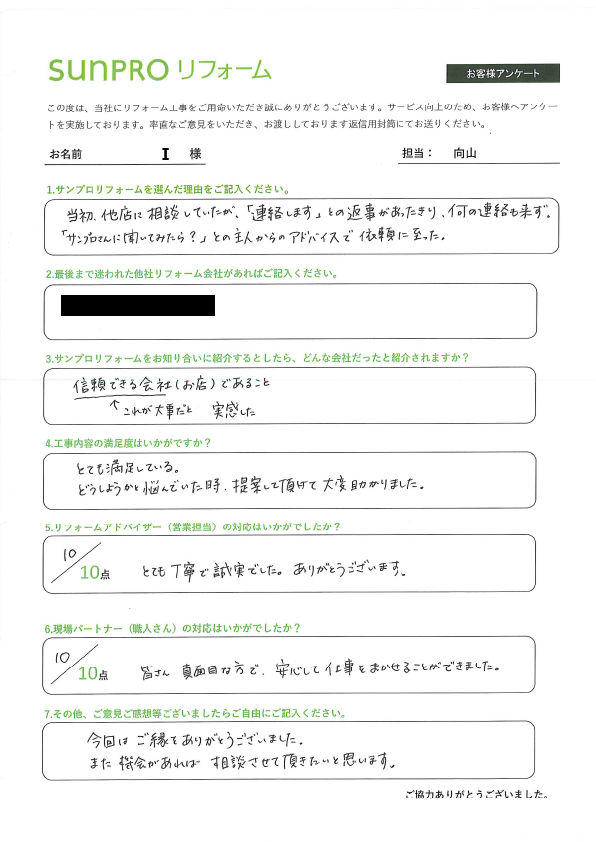 SUNPRO リフォーム
お客様アンケート
この度は、当社にリフォーム工事をご用命いただき誠にありがとうございます。サービス向上のため、お客様へアンケー
トを実施しております。率直なご意見をいただき、お渡ししております返信用封筒にてお送りください。
お名前 I 様 担当： 向山
1.サンプロリフォームを選んだ理由をご記入ください。
当初、他店に相談していたが、「連絡します」との返事があったきり、何の連絡も来ず。
「サンプロさんに聞いてみたら？」との主人からのアドバイスで依頼に至った。
2.最後まで迷われた他社リフォーム会社があればご記入ください。
3.サンプロリフォームをお知り合いに紹介するとしたら、どんな会社だったと紹介されますか？
信頼できる会社(お店)であること
↑これが大事だと 実感した
4.工事内容の満足度はいかがですか？
とても満足している。
どうしようかと悩んでいた時、提案して頂けて大変助かりました。
5.リフォームアドバイザー（営業担当）の対応はいかがでしたか？
10/10点 とても丁寧で誠実でした。ありがとうございます。
6.現場パートナー（職人さん）の対応はいかがでしたか？
10/10点 皆さん真面目な方で、安心して仕事をおまかせることができました。
7.その他、ご意見ご感想等ございましたらご自由にご記入ください。
今回はご縁をありがとうございました。
また機会があれば相談させて頂きたいと思います。
ご協力ありがとうございました。